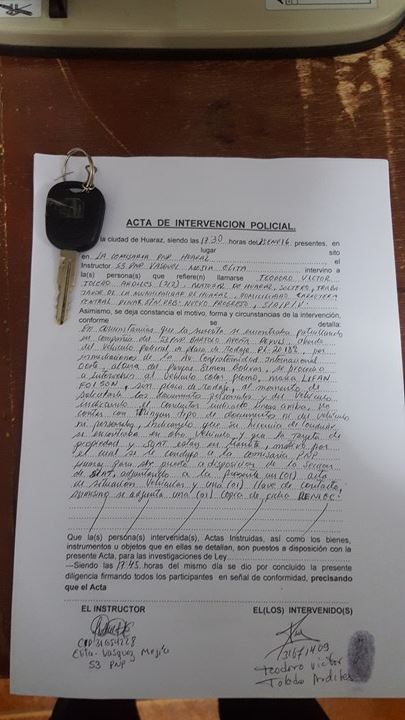 ACTA DE INTERVENCION POLICIAL.
la ciudad de Huaraz, siendo las 17:30 horas del presentes, en
lugar sito
en LA COMISARIA PNP HUARAZ el
Instructor S3 PNP VASQUEZ MEJIA ELITA intervino a
la(s) persona(s) que refiere(n) llamarse TEODORO VICTOR
TOLEDO ARDILES NATURAL DE HUARAZ, SOLTERO, TRABA
JADOR DE LA MUNICIPALIDAD DE HUARAZ, DOMICILIADO CARRETERA
CENTRAL S/N. NUEVO PROGRESO,
Asimismo, se deja constancia el motivo, forma y circunstancias de la intervención,
conforme se detalla:
En circunstancias que la suscrita se encontraba patrullando
en compañia del abordo
del vehículo policial de placa de Rodaje por
inmediaciones de la Av. Confraternidad Internacional
Oeste, altura del Parque Simon Bolivar, se procedio
a intervenir al vehículo color plomo, marca LIFAN
sin placa de rodaje, al momento de
solicitarle los documentos personales y del vehículo
indicando el conductor indicado lineas arriba, No
contar con ningun tipo de documento ni del vehículo
ni personales, indicando que su licencia de conducir
se encontraba en otro vehículo, y que la tarjeta de
propiedad y SOAT estan en tramite, motivo por
el cual se le condujo a la comisaria PNP
Huaraz para ser puesto a disposicion de la Seccion
de adjuntando a la presente un (01) acta
de situacion vehicular, y una (01) llave de contacto,
asimismo se adjunta una (01) copia de ficha RENIEC.
Que la(s) persona(s) intervenida(s), Actas Instruidas, así como los bienes,
instrumentos u objetos que en ellas se detallan, son puestos a disposición con la
presente Acta, para las investigaciones de Ley
---Siendo las 17:45 horas del mismo día se dio por concluido la presente
diligencia firmando todos los participantes en señal de conformidad, precisando
que el Acta
EL INSTRUCTOR
EL(LOS) INTERVENIDO(S)
CIP 31654228
Elita Vasquez Mejia
S3 PNP
31671409
Teodoro Victor
Toledo Ardiles